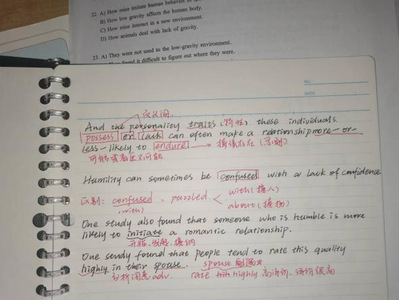 22. A) How mice imitate human behavior in
B) How low gravity affects the human body.
C) How mice interact in a new environment.
D) How animals deal with lack of gravity.
23. A) They were not used to the low-gravity environment.
found it difficult to figure out where they were.
反义词
And the personality traits (特性) these individuals
possess or lack can often make a relationship more-or-
less-likely to endure
Humility can sometimes be confused with a lack of confidence
区别: confused puzzled with (接人)
(with) about (接物)
One study also found that someone who is humble is more
likely to initiate a romantic relationship.
One study found that people tend to rate this quality
highly in their spouse. spouse
adv. rate sth highly